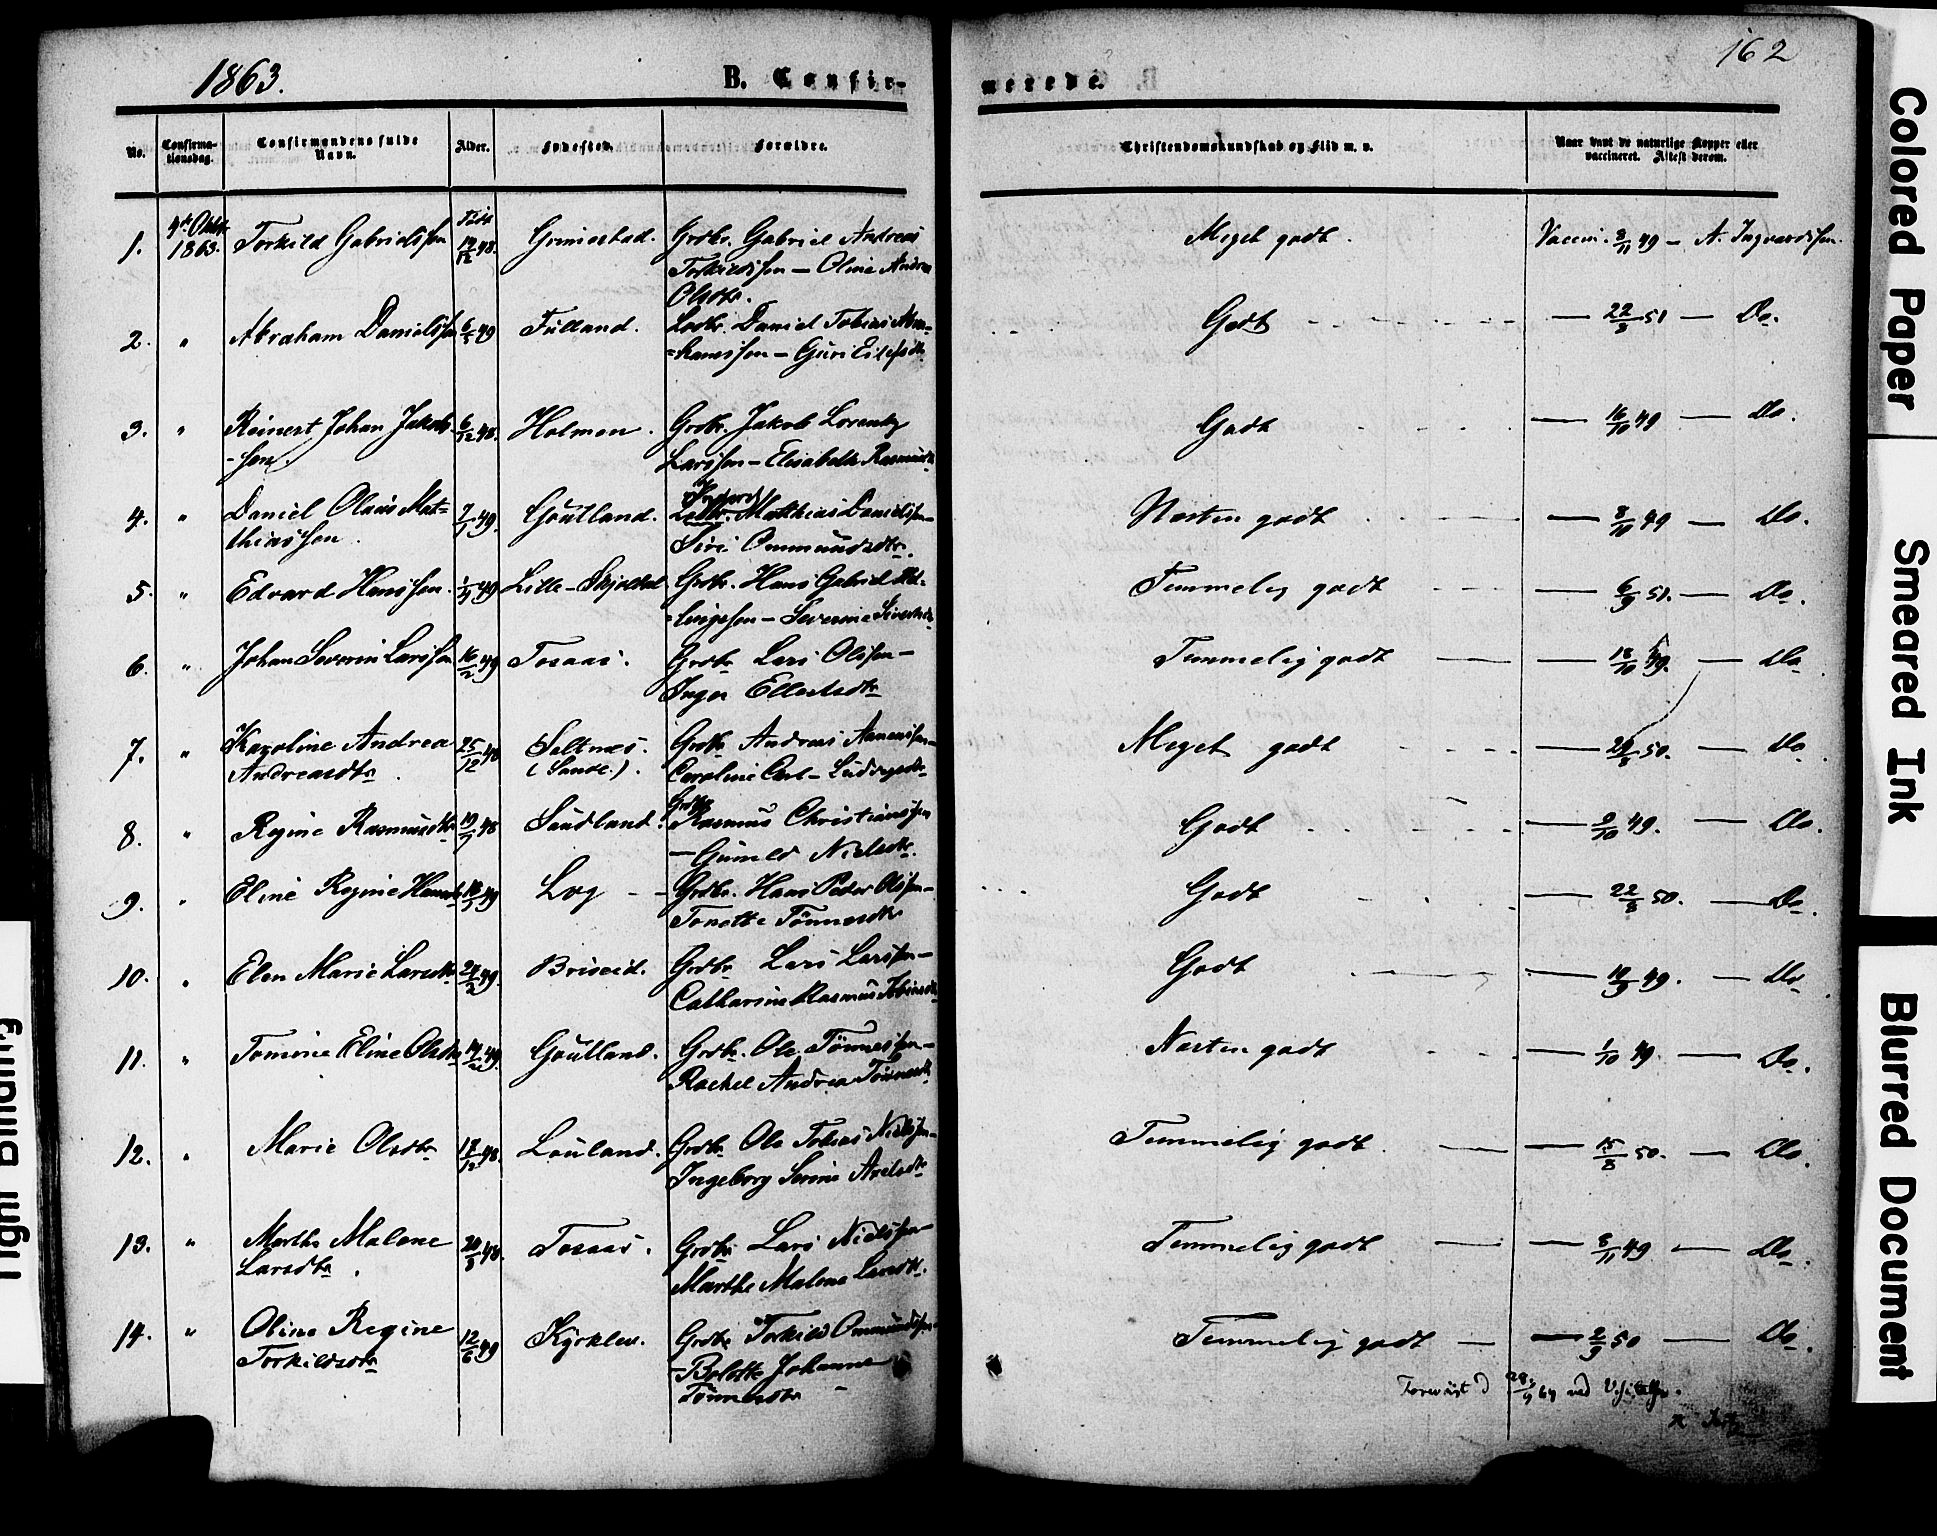 1863.
B. Confir-
merede.
162
No.
Confirma-
tionsdag.
Confirmandens fulde
Navn.
Alder.
Fødested.
Forældre.
Christendomskundskab og Flid m. v.
Naar havt de naturlige Kopper eller
vaccineret. Attest derom.
1. 4de Oktbr 1863. Torkild Gabrielssen Født 19/12 48. Grimestad. Grdbr. Gabriel Andreas
Torkildssen — Oline Andrea
Olsdtr.
Meget godt. Vaccin. 8/11 49 — A. Ingvardssen.
2. " Abraham Danielssen 6/5 49 Fuland. Daniel Tobias Abra=
=hamssen — Guri Eilefsdtr
Godt — 22/9 51 — Do.
3. " Reinert Johan Jakob-
-sen. 6/12 48. Holmen. Grdbr. Jakob Lorentz
Larssen — Elisabeth Rasmusdtr
Godt — 16/10 49 — Do.
4. " Daniel Olaus Mat=
thiassen. 7/1 49. Goutland. Matthias Danielssen —
Siri Ommundsdtr.
Næsten godt — 8/10 49 — Do.
5. " Edvard Hanssen. 49 Lille-Skjoldal Grdbr. Hans Gabriel
— Severine
Temmelig godt — 6/9 51. — Do.
6. " Johan Severin Larssen 16/2 49 Tosaas. Grdbr Lars Olssen —
Inger Ellertsdtr
Temmelig godt — 18/10 49. — Do
7. " Karoline Andrea
Andreasdtr. 25/12 48 Saltnes.
(Sande.). Grdbr Andreas Aanenssen —
Caroline Carl-Ludvigsdtr
Meget godt — 50. — Do
8. " Regine Rasmusdtr 48 Saudland. Grdbr
Rasmus Christianssen
— Gunild Nielsdtr.
Godt — 9/10 49. — Do.
9. " Eline Regine Hansdtr 49 Log — Grdbr. Hans Peder Olssen —
Tonette Tönnesdtr
Godt — 22/8 50. — Do.
10. " Elen Marie Larsdtr 24/2 49. Briseid. Grdbr Lars Larssen —
Catharine Rasmus Tobiasdtr
Godt — 19/9 49. — Do
11. " Tomine Eline Olsdtr 49. Goutland. Grdbr. Ole Tönnessen —
Rachel Andrea Tönnesdtr
Næsten godt — 1/10 49. — Do.
12. " Marie Olsdtr 17/12 48. Louland. Grdbr Ole Tobias Nielssen —
Ingeborg Serine Axelsdtr
Temmelig godt. — 15/8 50. — Do.
13. " Marthe Malene
Larsdtr. 20/8 48. Tosaas. Grdbr Lars Nielssen —
Marthe Malene Larsdtr.
Temmelig godt — 8/11 49 — Do.
14. " Oline Regine
Torkildsdtr 12/6 49 Kyrkleu. Grdbr Torkild Ommundssen
— Bolette Johanne
Tönnesdtr —
Temmelig godt — 2/9 50 — Do.
Forevist d 28/9 64 ved
Colored Paper
Smeared Ink
Blurred Document
Tight Binding